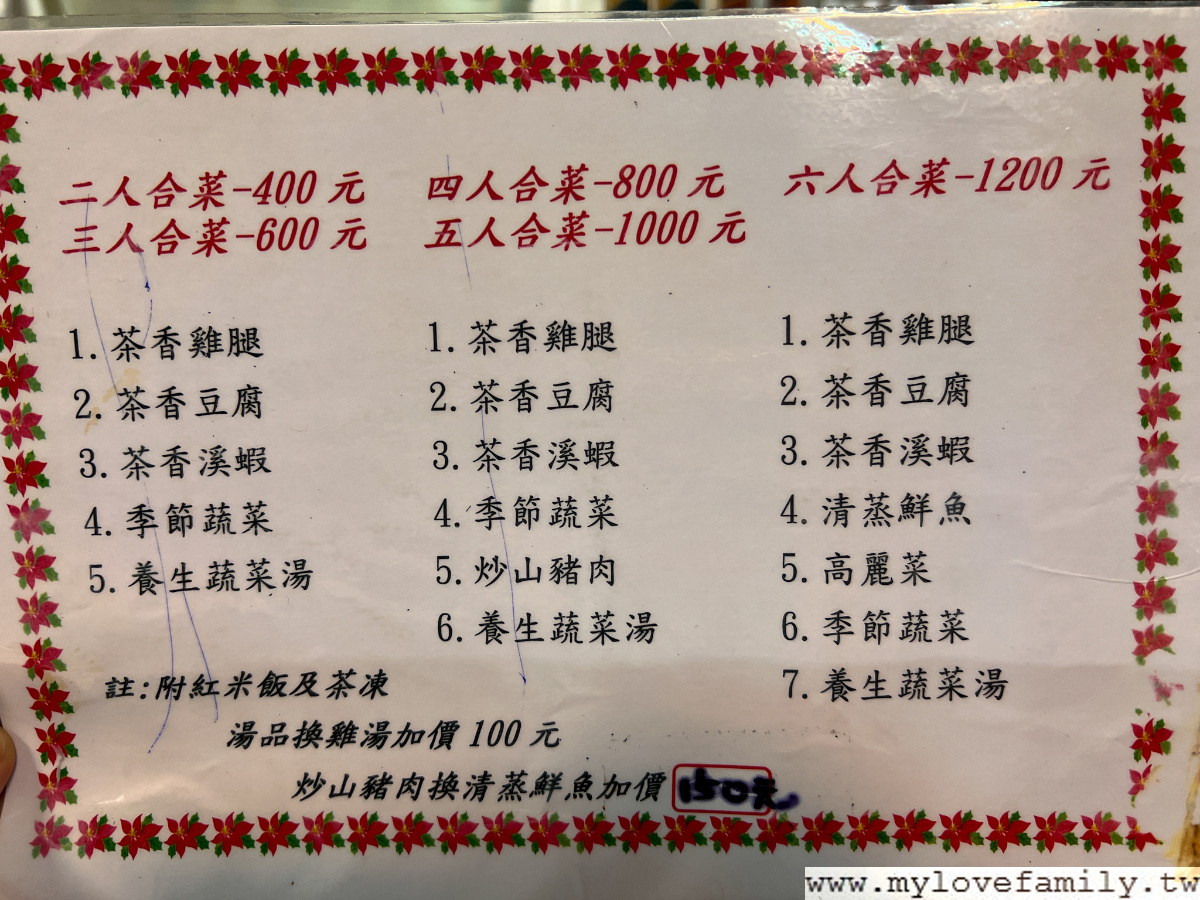 二人合菜-400 元
三人合菜-600 元
1. 茶香雞腿
2. 茶香豆腐
3. 茶香溪蝦
4. 季節蔬菜
5. 養生蔬菜湯
四人合菜-800 元
五人合菜-1000 元
1. 茶香雞腿
2. 茶香豆腐
3. 茶香溪蝦
4. 季節蔬菜
5. 炒山豬肉
6. 養生蔬菜湯
六人合菜-1200 元
1. 茶香雞腿
2. 茶香豆腐
3. 茶香溪蝦
4. 清蒸鮮魚
5. 高麗菜
6. 季節蔬菜
7. 養生蔬菜湯
註:附紅米飯及茶凍
湯品換雞湯加價 100 元
炒山豬肉換清蒸鮮魚加價 150元
www.mylovefamily.tw